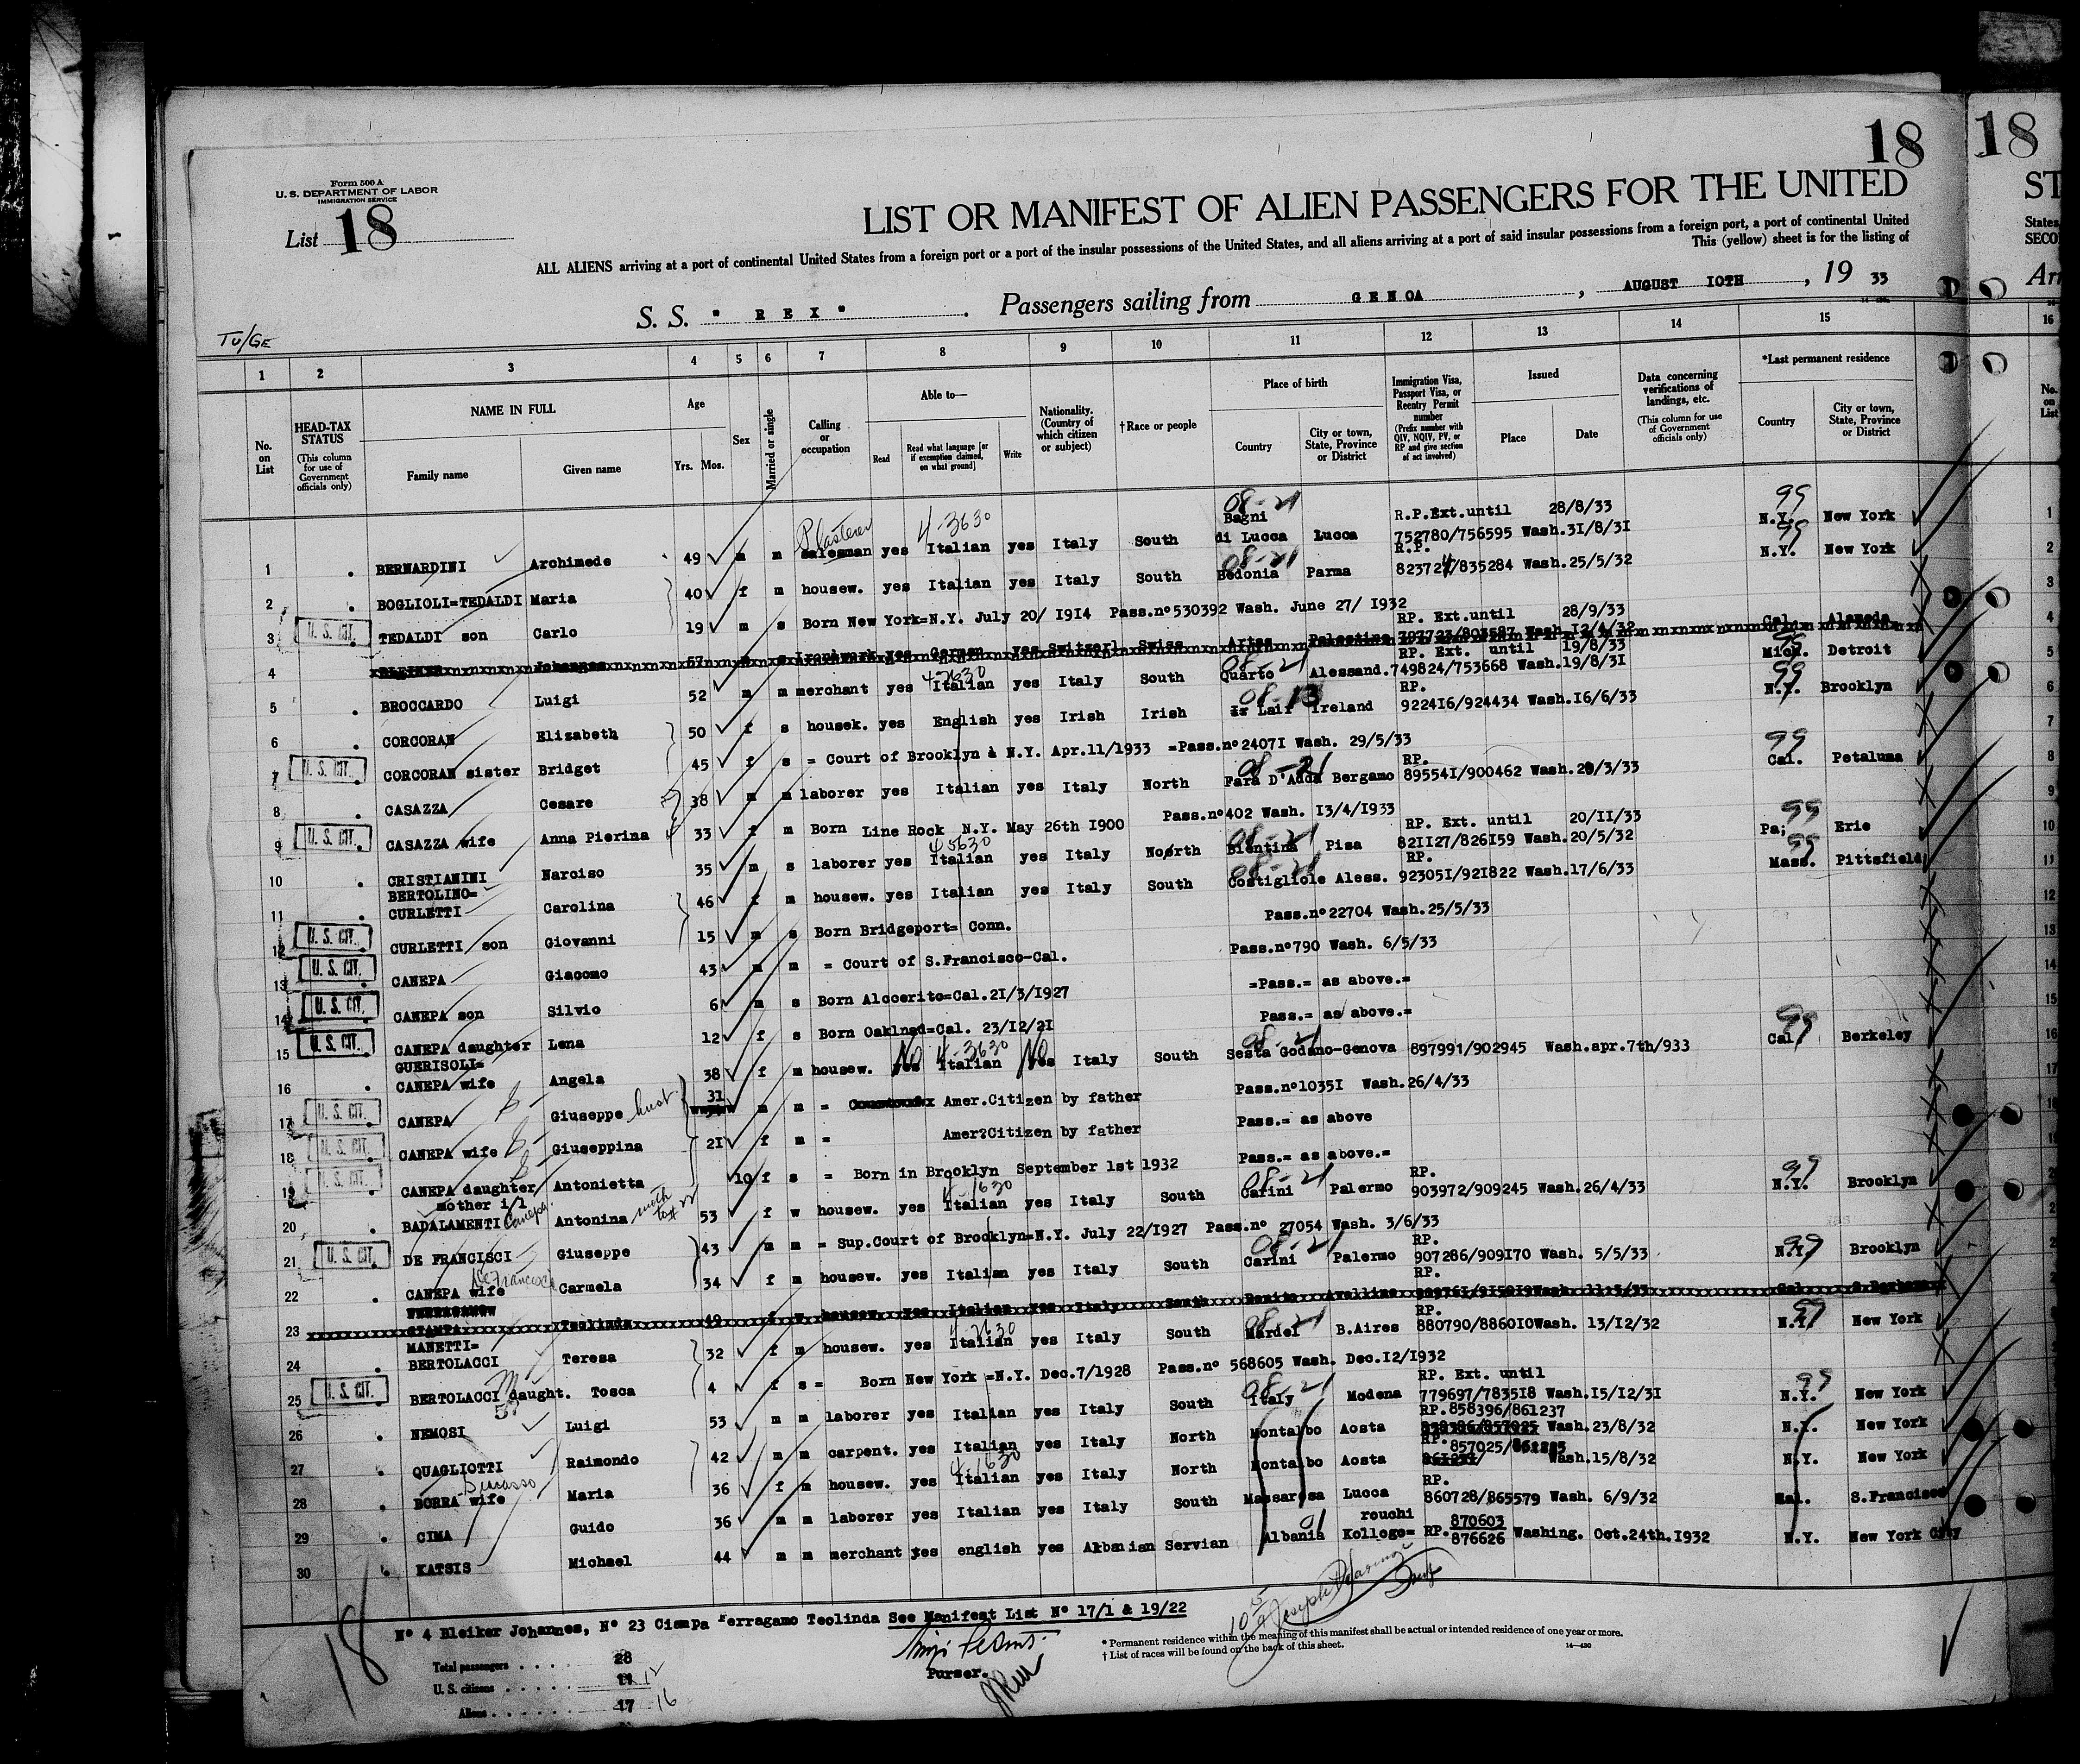 18
18
Form 500 A
U. S. DEPARTMENT OF LABOR
IMMIGRATION SERVICE
List 18
LIST OR MANIFEST OF ALIEN PASSENGERS FOR THE UNITED
ST
ALL ALIENS arriving at a port of continental United States from a foreign port or a port of the insular possessions of the United States, and all aliens arriving at a port of said insular possessions from a foreign port, a port of continental United
States
This (yellow) sheet is for the listing of
SECO
S. S. " R E X " . Passengers sailing from G E N OA , AUGUST IOTH , 19 33
Arr
TU/GE
1 2 3 4 5 6 7 8 9 10 11 12 13 14 15
16
No. on List
HEAD-TAX STATUS
(This column for use of Government officials only)
NAME IN FULL
Family name
Given name
Age
Yrs. Mos.
Sex
Married or single
Calling or occupation
Able to—
Read
Read what language [or if exemption claimed, on what ground]
Write
Nationality. (Country of which citizen or subject)
† Race or people
Place of birth
Country
City or town, State, Province or District
Immigration Visa, Passport Visa, or Reentry Permit number
(Prefix number with QIV, NQIV, PV, or RP and give section of act involved)
Issued
Place
Date
Data concerning verifications of landings, etc.
(This column for use of Government officials only)
*Last permanent residence
Country
City or town, State, Province or District
No. on List
Plasterer 4-3630 08-21 99
Bagni R.P.Ext.until 28/8/33
1 BERNARDINI Archimede 49 m m salesman yes Italian yes Italy South di Lucca Lucca 752780/756595 Wash.3I/8/3I N.Y. New York 1
08-21 R.P. 99
2 BOGLIOLI=TEDALDI Maria 40 f m housew. yes Italian yes Italy South Bedonia Parma 823724/835284 Wash.25/5/32 N.Y. New York 2
3 U. S. CIT. TEDALDI son Carlo 19 m s Born New York=N.Y. July 20/ I9I4 Pass.nº530392 Wash. June 27/ I932 3
RP. Ext.until 28/9/33
4 Johannes 57 Ironwork yes German yes Switzerl Swiss Artes Palestine Wash I2/4/32 Cal. Alameda 4
4-3630 08-21 RP. Ext. until 19/8/33 99
5 BROCCARDO Luigi 52 m m merchant yes Italian yes Italy South Quarto Alessand.749824/753668 Wash.19/8/3I Mich. Detroit 5
08-13 RP. 99
6 CORCORAN Elizabeth 50 f s housek. yes English yes Irish Irish Laif Ireland 9224I6/924434 Wash.I6/6/33 N.Y. Brooklyn 6
7 U. S. CIT. CORCORAN sister Bridget 45 f s = Court of Brooklyn à N.Y. Apr.11/1933 =Pass.nº2407I Wash. 29/5/33 7
08-21 RP. 99
8 CASAZZA Cesare 38 m m laborer yes Italian yes Italy North Fara D'Adda Bergamo 89554I/900462 Wash.20/3/33 Cal. Petaluma 8
9 U. S. CIT. CASAZZA wife Anna Pierina 33 f m Born Line Rock N.Y. May 26th I900 Pass.nº402 Wash. I3/4/I933 9
45630 08-21 RP. Ext. until 20/II/33 99
10 CRISTIANINI Narciso 35 m s laborer yes Italian yes Italy Noorth Bientina Pisa 82II27/826I59 Wash.20/5/32 Pa; Erie 10
BERTOLINO= 08-21 RP. 99
11 CURLETTI Carolina 46 f m housew. yes Italian yes Italy South Costigliole Aless. 92305I/92I822 Wash.I7/6/33 Mass. Pittsfield 11
12 U. S. CIT. CURLETTI son Giovanni 15 m s Born Bridgeport= Conn. Pass.nº22704 Wash.25/5/33 12
13 U. S. CIT. CANEPA Giacomo 43 m m = Court of S.Francisco-Cal. Pass.nº790 Wash. 6/5/33 13
14 U. S. CIT. CANEPA son Silvio 6 m s Born Alocerito=Cal.2I/3/I927 =Pass.= as above.= 14
15 U. S. CIT. CANEPA daughter Lena 12 f s Born Oaklnad=Cal. 23/I2/2I Pass.= as above.= 15
GUERISOLI= No 4-3630 No 08-21 99
16 CANEPA wife Angela 38 f m housew. Italian yes Italy South Sesta Godano-Genova 897991/902945 Wash.apr.7th/933 Cal Berkeley 16
17 U. S. CIT. CANEPA Giuseppe hust 31 m m = Amer.Citizen by father Pass.nº1035I Wash.26/4/33 17
18 U. S. CIT. CANEPA wife Giuseppina 2I f m = Amer?Citizen by father Pass.= as above
19 U. S. CIT. CANEPA daughter Antonietta 10 f s = Born in Brooklyn September 1st 1932 Pass.= as above.=
mother i/l Canepa 4-1630 08-21 RP. 99
20 BADALAMENTI Antonina 53 f w housew. yes Italian yes Italy South Carini Palermo 903972/909245 Wash.26/4/33 N.Y. Brooklyn
21 U. S. CIT. DE FRANCISCI Giuseppe 43 m m = Sup.Court of Brooklyn=N.Y. July 22/I927 Pass.nº 27054 Wash. 3/6/33
De Francisci 08-21 RP. 99
22 CANEPA wife Carmela 34 f m housew. yes Italian yes Italy South Carini Palermo 907286/909I70 Wash. 5/5/33 N.Y. Brooklyn
RP.
23 CIAMPA Teolinda 49 f w housew. yes Italian yes Italy South Avellino Cal. S.Barbara
MANETTI= 4-3630 08-21 RP. 99
24 BERTOLACCI Teresa 32 f m housew. yes Italian yes Italy South Mardel B.Aires 880790/8860I0Wash. I3/I2/32 N.Y. New York
25 U. S. CIT. BERTOLACCI daught. Tosca 4 f s = Born New York =N.Y. Dec.7/1928 Pass.nº 568605 Wash. Dec.I2/I932
08-21 RP. Ext. until 99
26 NEMOSI Luigi 53 m m laborer yes Italian yes Italy South Italy Modena 779697/7835I8 Wash.I5/I2/3I N.Y. New York
RP.858396/861237
27 QUAGLIOTTI Raimondo 42 m m carpent. yes Italian yes Italy North Montalbo Aosta Wash.23/8/32 N.Y. New York
4-1630 RP. 857025/
28 BORRA wife Maria 36 f m housew. yes Italian yes Italy North Montalbo Aosta Wash.I5/8/32 N.Y. New York
RP.
29 CIMA Guido 36 m m laborer yes Italian yes Italy South Massarosa Lucca 860728/865579 Wash. 6/9/32 S.Francisco
rouchi 870603
30 KATSIS Michael 44 m m merchant yes english yes Albanian Servian Albania Kollogo= RP. 876626 Washing. Oct.24th.I932 N.Y. New York City
18
Nº 4 Bleiker Johannes, Nº 23 Ciampa Ferragamo Teolinda See Manifest List Nº 17/1 & 19/22
Total passengers . . . . 28
U. S. citizens . . . . . 11 12
Aliens . . . . . . 17 16
Purser.
* Permanent residence within the meaning of this manifest shall be actual or intended residence of one year or more.
† List of races will be found on the back of this sheet.
14—430